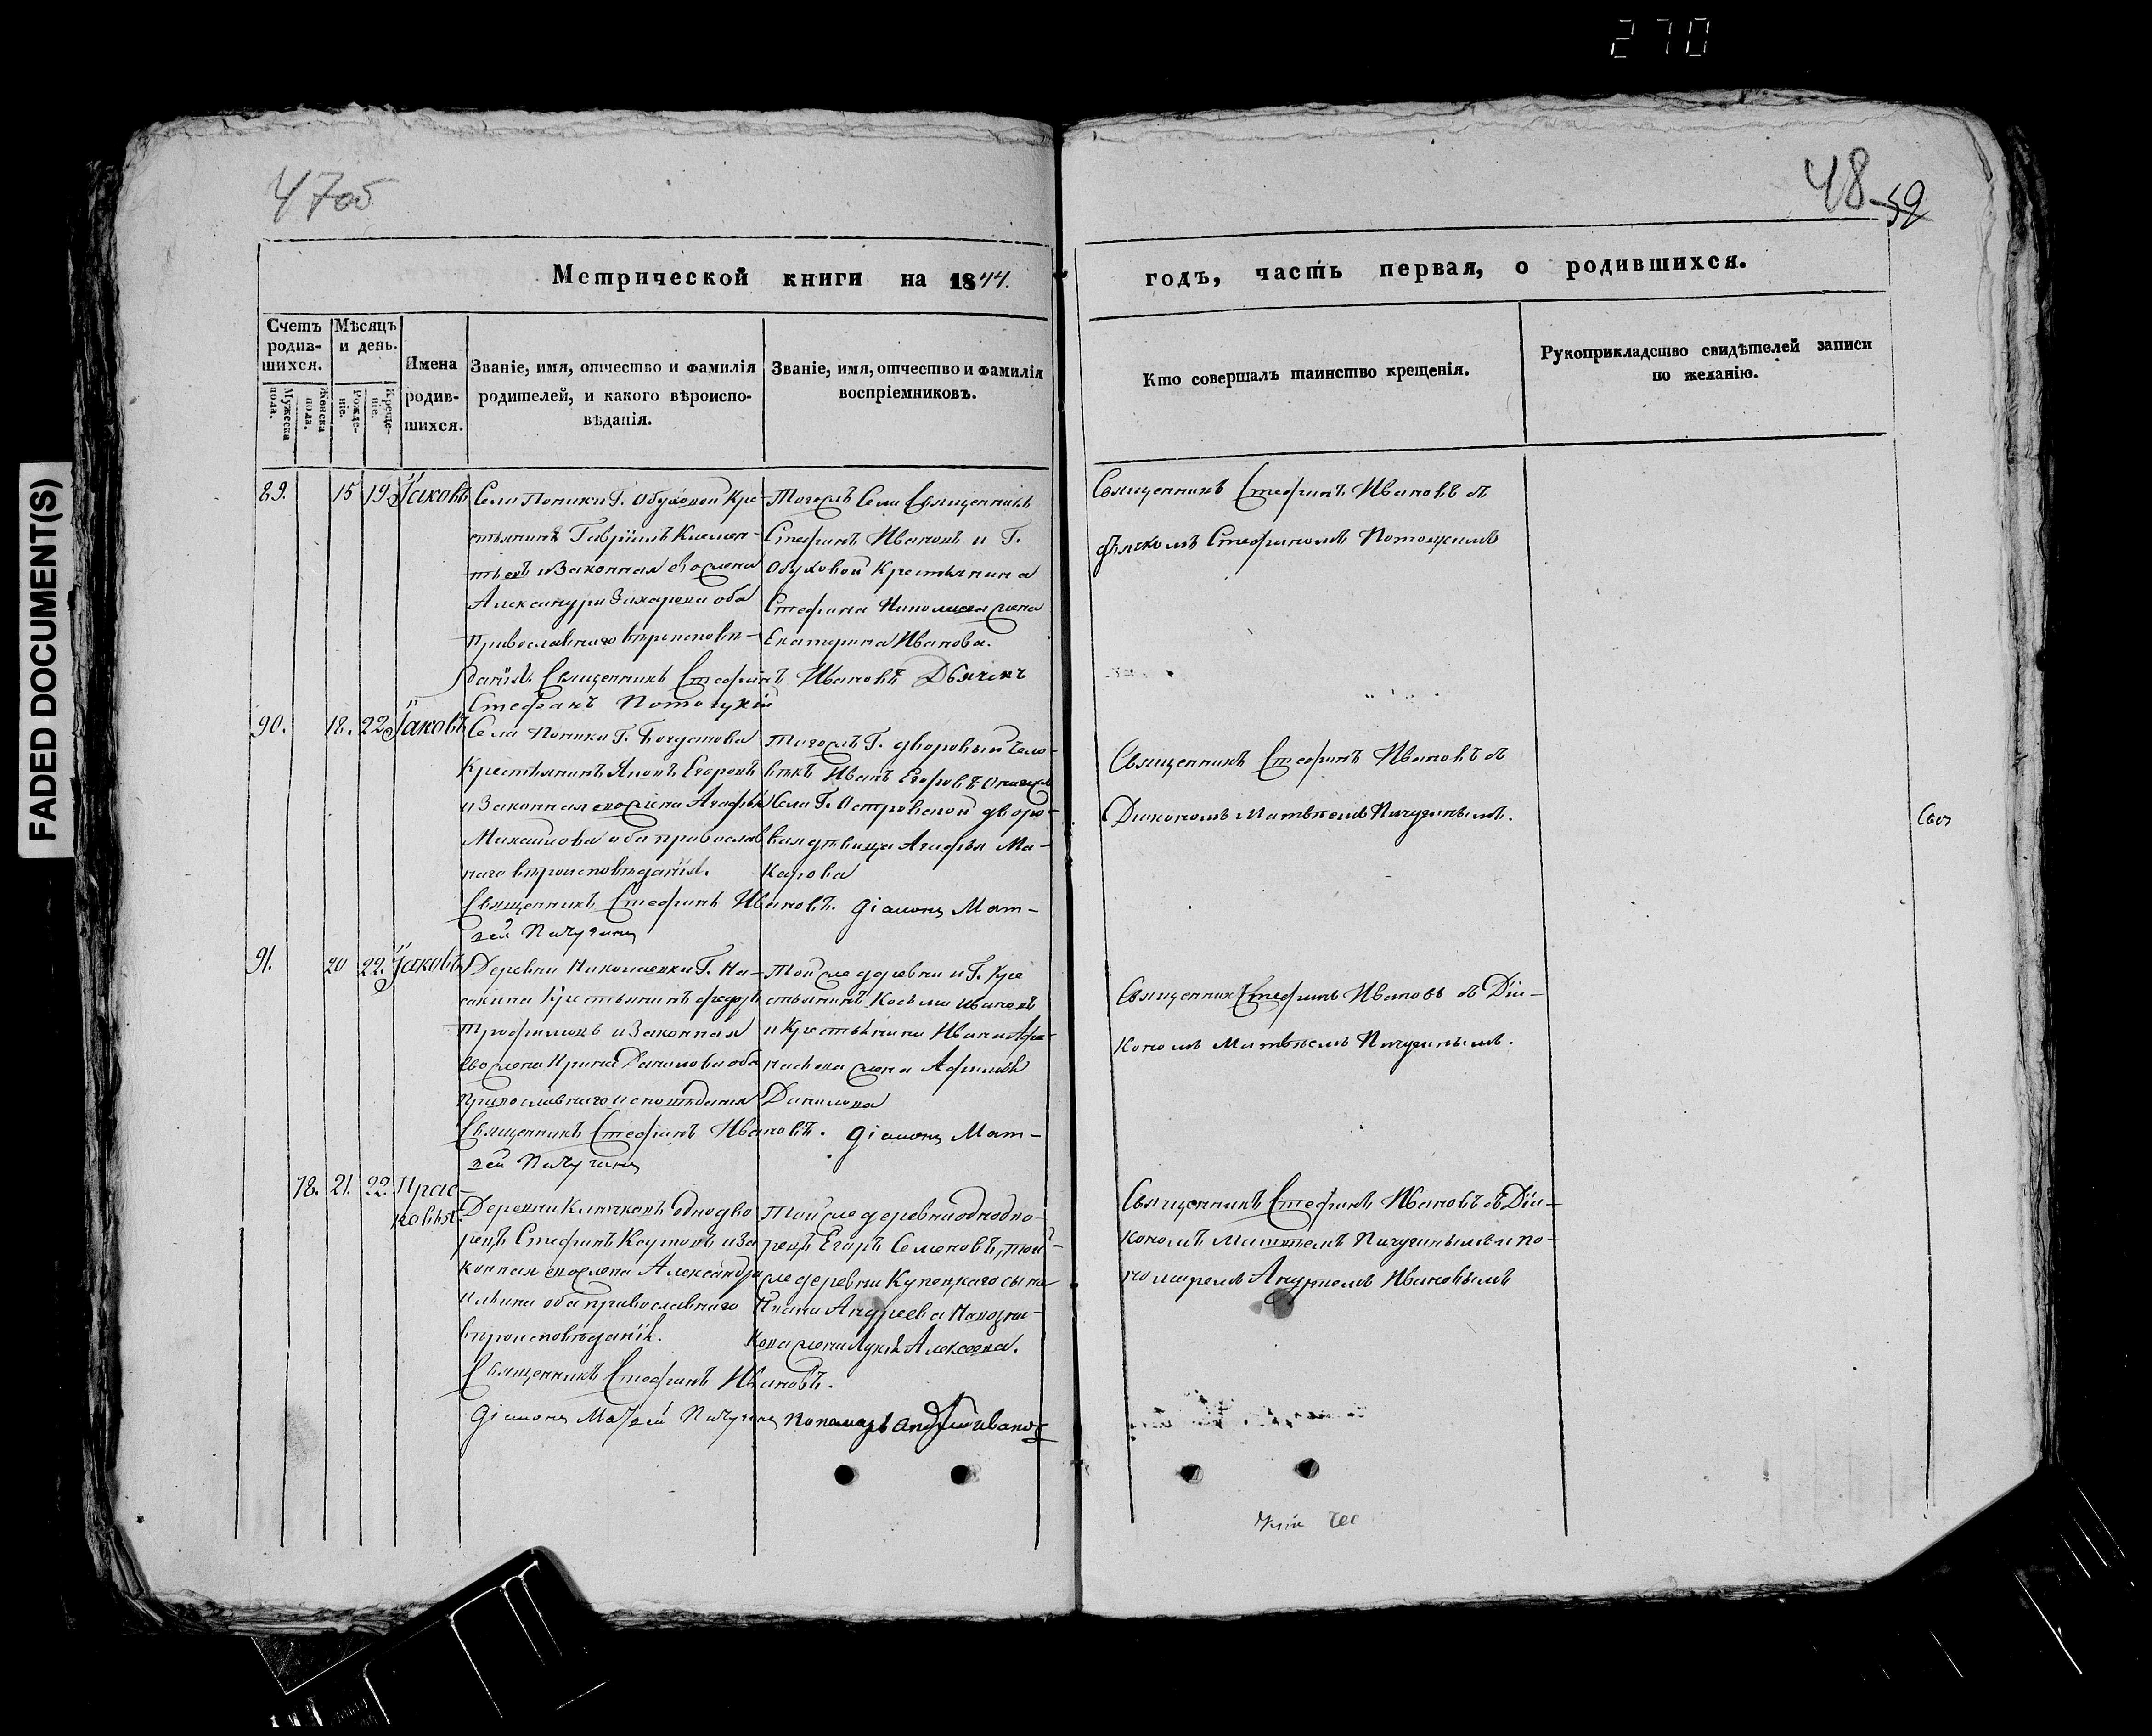 270
47об
48 52
Метрической книги на 1844.
годъ, часть первая, о родившихся.
Счетъ родив-шихся.
Мужеска пола.
Женска пола.
Мѣсяцъ и день.
Рожде-ніе.
Креще-ніе.
Имена родив-шихся.
Званіе, имя, отчество и фамилія родителей, и какого вѣроиспо-вѣданія.
Званіе, имя, отчество и фамилія воспріемниковъ.
Кто совершалъ таинство крещенія.
Рукоприкладство свидѣтелей записи по желанію.
89. 15 19 Іаковъ
Села Поники Г. Обуховой Кре-
стьянинъ Гавріилъ Клемен-
тьевъ и Законная его жена
Александра Захарова оба
Православнаго вѣроисповѣ-
данія. Священникъ Стефанъ Ивановъ Дьячекъ
Стефанъ Потоцкій
Тогожъ Села Священникъ
Стефанъ Ивановъ и Г.
Обуховой Крестьянина
Стефана Николаева жена
Екатерина Иванова.
Священникъ Стефанъ Ивановъ съ
дьячкомъ Стефаномъ Потоцкимъ
90. 18. 22 Іаковъ
Села Поники Г. Богданова
Крестьянинъ Яковъ Егоровъ
и Законная его жена Агафья
Михайлова оба православ
наго вѣроисповѣданія.
Священникъ Стефанъ Ивановъ. Діаконъ Мат-
вей Пичугинъ
Тогожъ Г. дворовый чело-
вѣкъ Иванъ Егоровъ
Села Г. Островской дворо-
вая дѣвица Агафья Ма-
карова
Священникъ Стефанъ Ивановъ съ
Діакономъ Матвѣемъ Пичугинымъ.
91. 20 22. Іаковъ
Деревни Николаевки Г. На-
Крестьянинъ Федоръ
Трофимовъ и Законная
его жена Ирина Данилова оба
православнаго исповѣданія
Священникъ Стефанъ Ивановъ. Діаконъ Мат-
вей Пичугинъ
Той же деревни и Г. Кре
стьянинъ Косьма Ивановъ
и Крестьянина Ивана Афа-
насьева жена Афимья
Данилова
Священникъ Стефанъ Ивановъ съ Діа-
кономъ Матвѣемъ Пичугинымъ.
78. 21. 22. Прас-
ковія.
Деревни Ключковъ Однодво
рецъ Стефанъ Карповъ и За
конная его жена Александра
Ильина оба православнаго
вѣроисповѣданія.
Священникъ Стефанъ Ивановъ.
Діаконъ Матвей Пичугинъ Пономарь Андрей Ивановъ
Той же деревни однодво-
рецъ Егоръ Семеновъ, той-
же деревни Купецкаго сына
Ивана Андреева
жена Алексеева.
Священникъ Стефанъ Ивановъ съ Діа-
кономъ Матвѣемъ Пичугинымъ и по-
номаремъ Андреемъ Ивановымъ
FADED DOCUMENT(S)